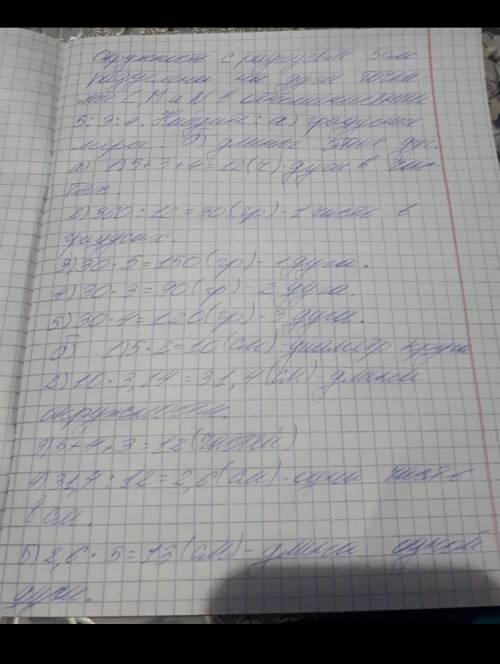 окружность с радиусом 5см
разделили на дуги точка-
ми L, M и N в отношении
5:3:4. Найдите: а) градусную
меру. б) длины этих дуг.
а) 1) 5+3+4=12(ч)-дуги в час-
тях.
2) 360:12=30(гр)-1 часть в
градусах.
3) 30·5=150(гр)-1 дуга.
4) 30·3=90(гр)-2 дуга.
5) 30·4=120(гр)-3 дуга.
б) 1) 5·2=10(см)-диаметр круга
2) 10·3,14=31,4(см)-длина
окружности.
3) 5+4+3=12(частей)
4) 31,4:12=2,6(см)-одна часть
в см.
5) 2,6·5=13(см)-длина одной
дуги.